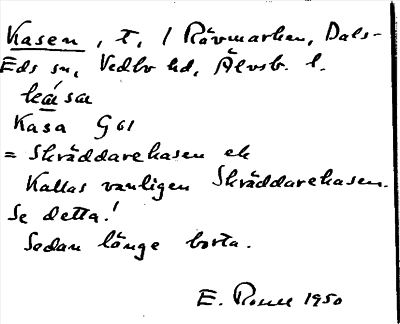 Kasen, t, i Rävmarken, Dals-
Eds sn, Vedbo hd, Älvsb. l.
ka͟sa
Kasa G 61
= Skräddarekasen ek
Kallas vanligen Skräddarekasen.
Se detta!
Sedan länge borta.
E. 1950